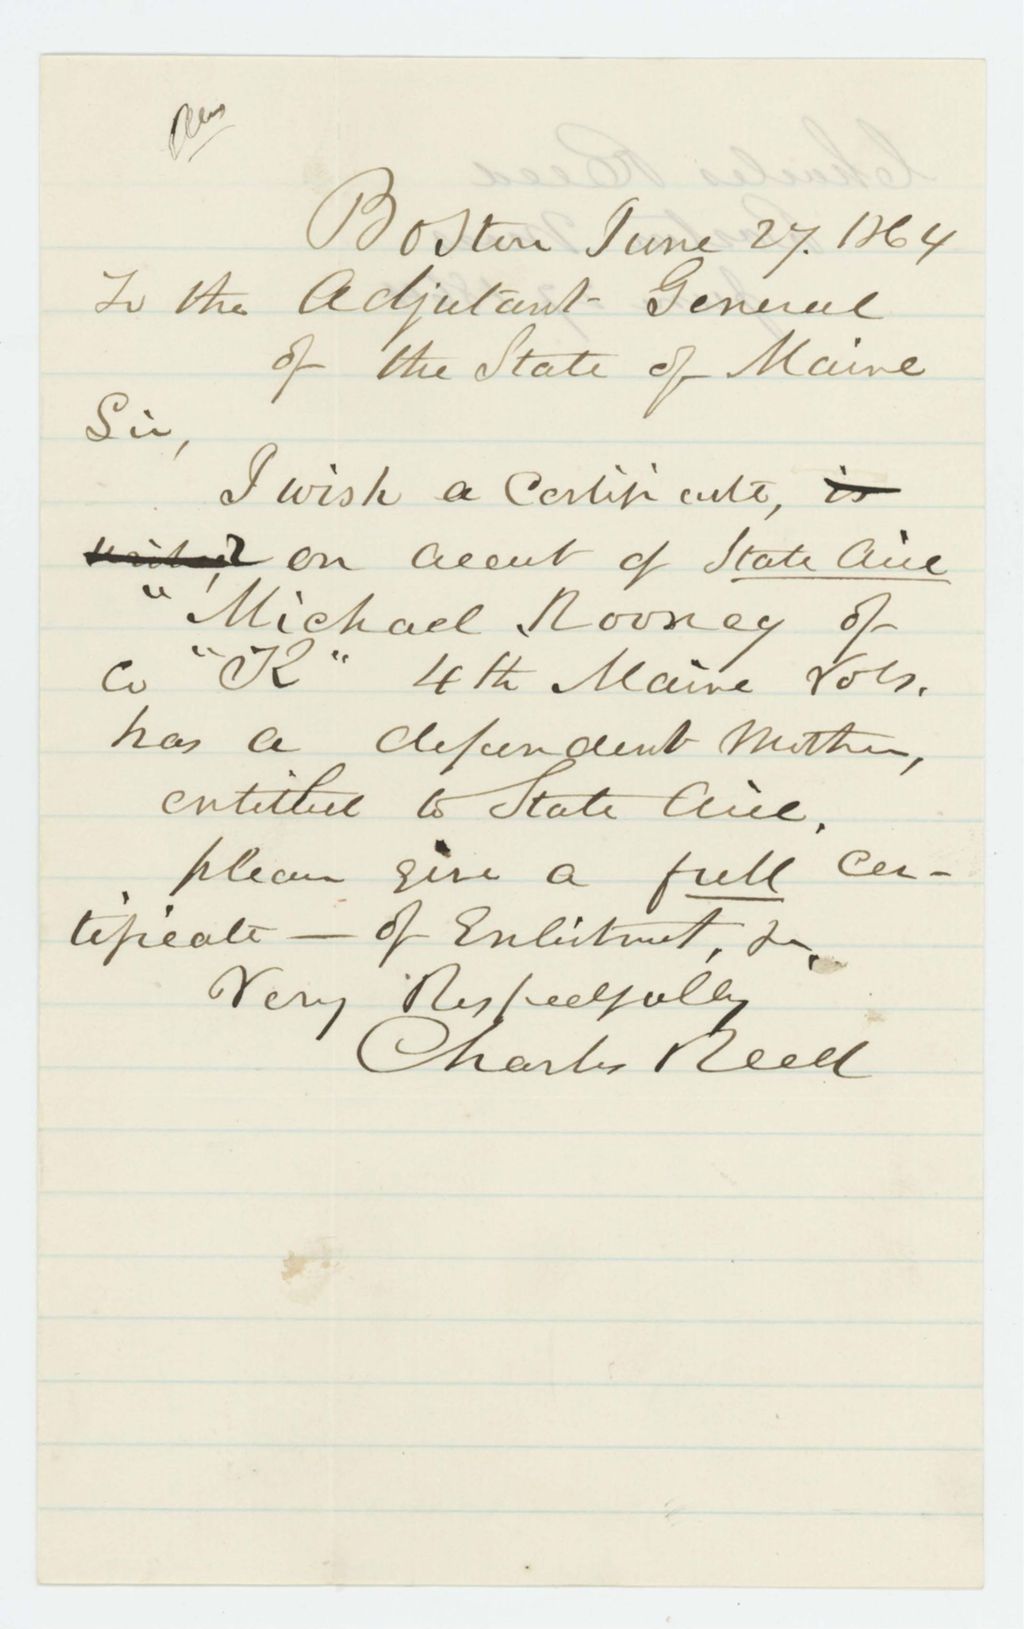 Boston June 27. 1864
To the Adjutant General
of the State of Maine
Sir,
I wish a Certificate, is
on accut of State Aid
"Michael Rooney of
Co "K" 4th Maine Vols.
has a dependent Mother,
entitled to State Aid.
please give a full Cer-
tificate — of Enlistment, &c.
Very Respectfully
Charles Reed
Charles Reed